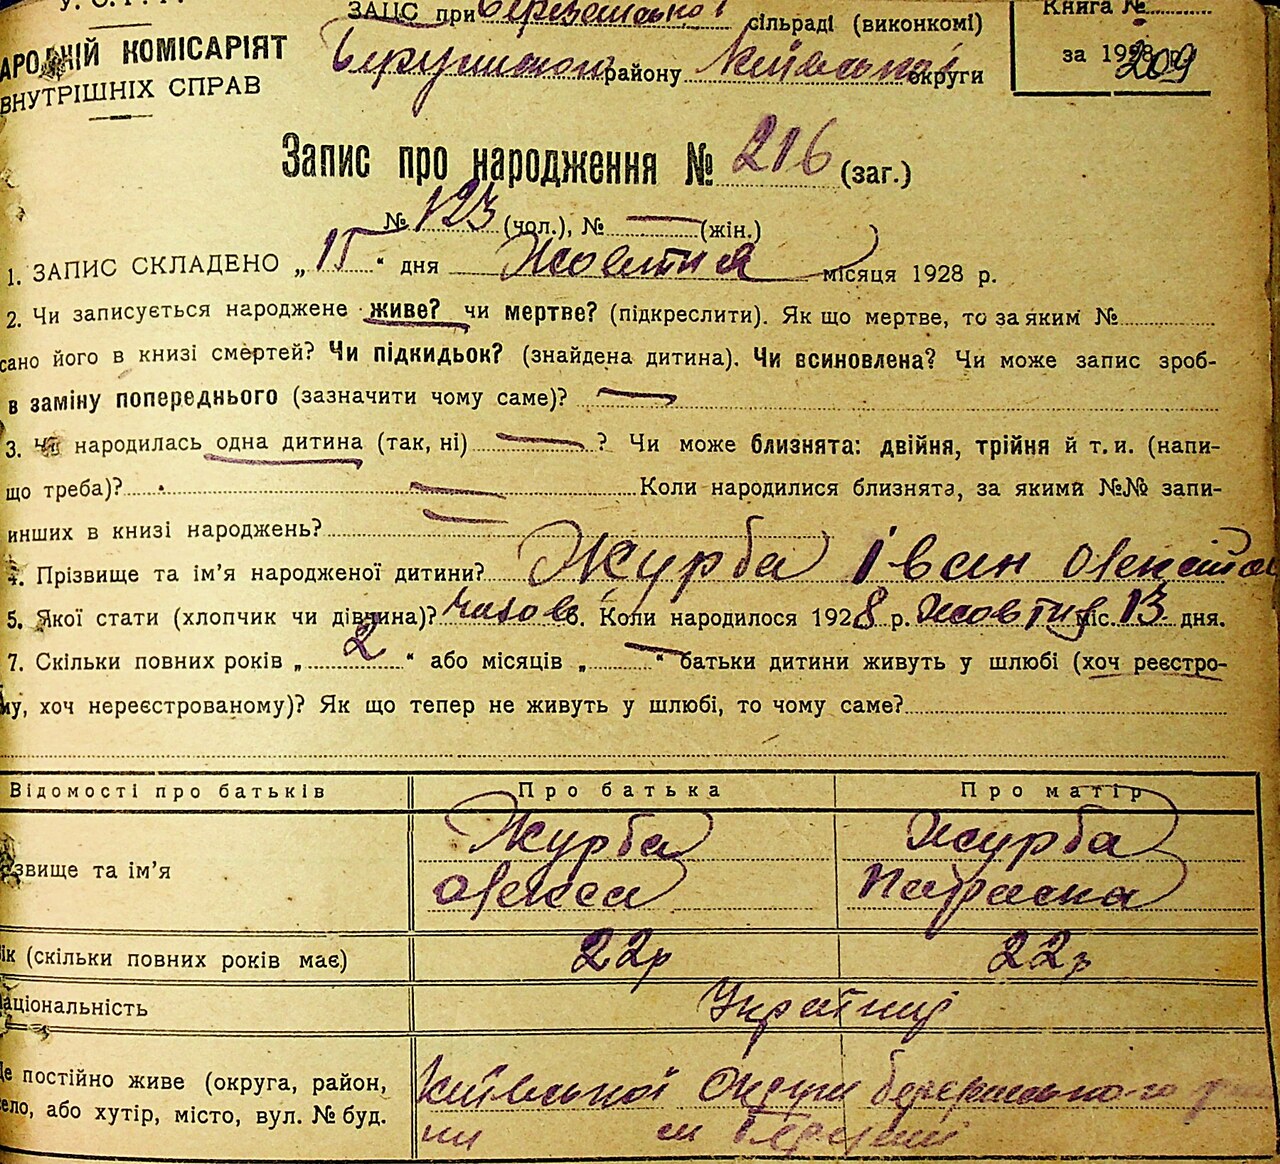 У. С. Р. Р.
ЗАЦС при сільраді (виконкомі)
району Київської округи
Книга №
за 1928 209
АРОДНІЙ КОМІСАРІЯТ
ВНУТРІШНІХ СПРАВ
Запис про народження № 216 (заг.)
№ 123 (чол.), № — (жін.)
1. ЗАПИС СКЛАДЕНО „15“ дня Жовтня місяця 1928 р.
2. Чи записується народжене живе? чи мертве? (підкреслити). Як що мертве, то за яким №
сано його в книзі смертей? Чи підкидьок? (знайдена дитина). Чи всиновлена? Чи може запис зроб-
в заміну попереднього (зазначити чому саме)? —
3. Чи народилась одна дитина (так, ні) — ? Чи може близнята: двійня, трійня й т. и. (напи-
що треба)? — Коли народилися близнята, за якими №№ запи-
инших в книзі народжень? —
4. Прізвище та ім’я народженої дитини? Журба Іван
5. Якої стати (хлопчик чи дівчина)? 6. Коли народилося 1928 р. жовтня міс. 13 дня.
7. Скільки повних років „2“ або місяців „—“ батьки дитини живуть у шлюбі (хоч реєстро-
му, хоч нереєстрованому)? Як що тепер не живуть у шлюбі, то чому саме?
Відомості про батьків Про батька Про матір
Журба Журба
звище та ім’я
Олекса Параска
ік (скільки повних років має) 22р 22р
аціональність Українці
Київської Округи
е постійно живе (округа, район,
ело, або хутір, місто, вул. № буд.